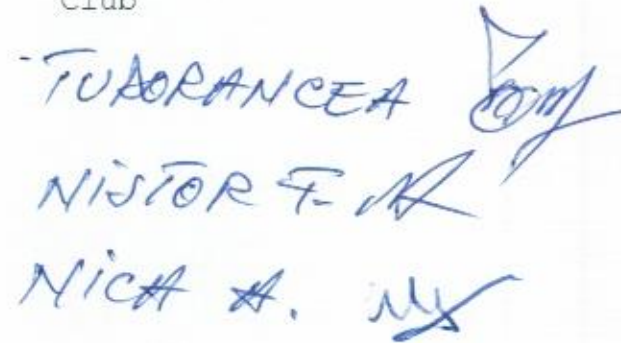 Club
-TUDORANCEA
NISTOR F.
NICA A.